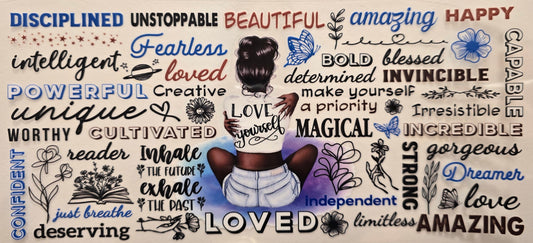 DISCIPLINED UNSTOPPABLE BEAUTIFUL amazing HAPPY
intelligent Fearless loved BOLD blessed
determined INVINCIBLE CAPABLE
POWERFUL Creative make yourself
a priority Irresistible
unique LOVE yourself MAGICAL INCREDIBLE
WORTHY CULTIVATED
CONFIDENT reader INHALE
THE FUTURE
exhale
THE PAST
STRONG gorgeous
Dreamer
love
just breathe independent
deserving LOVED limitless AMAZING